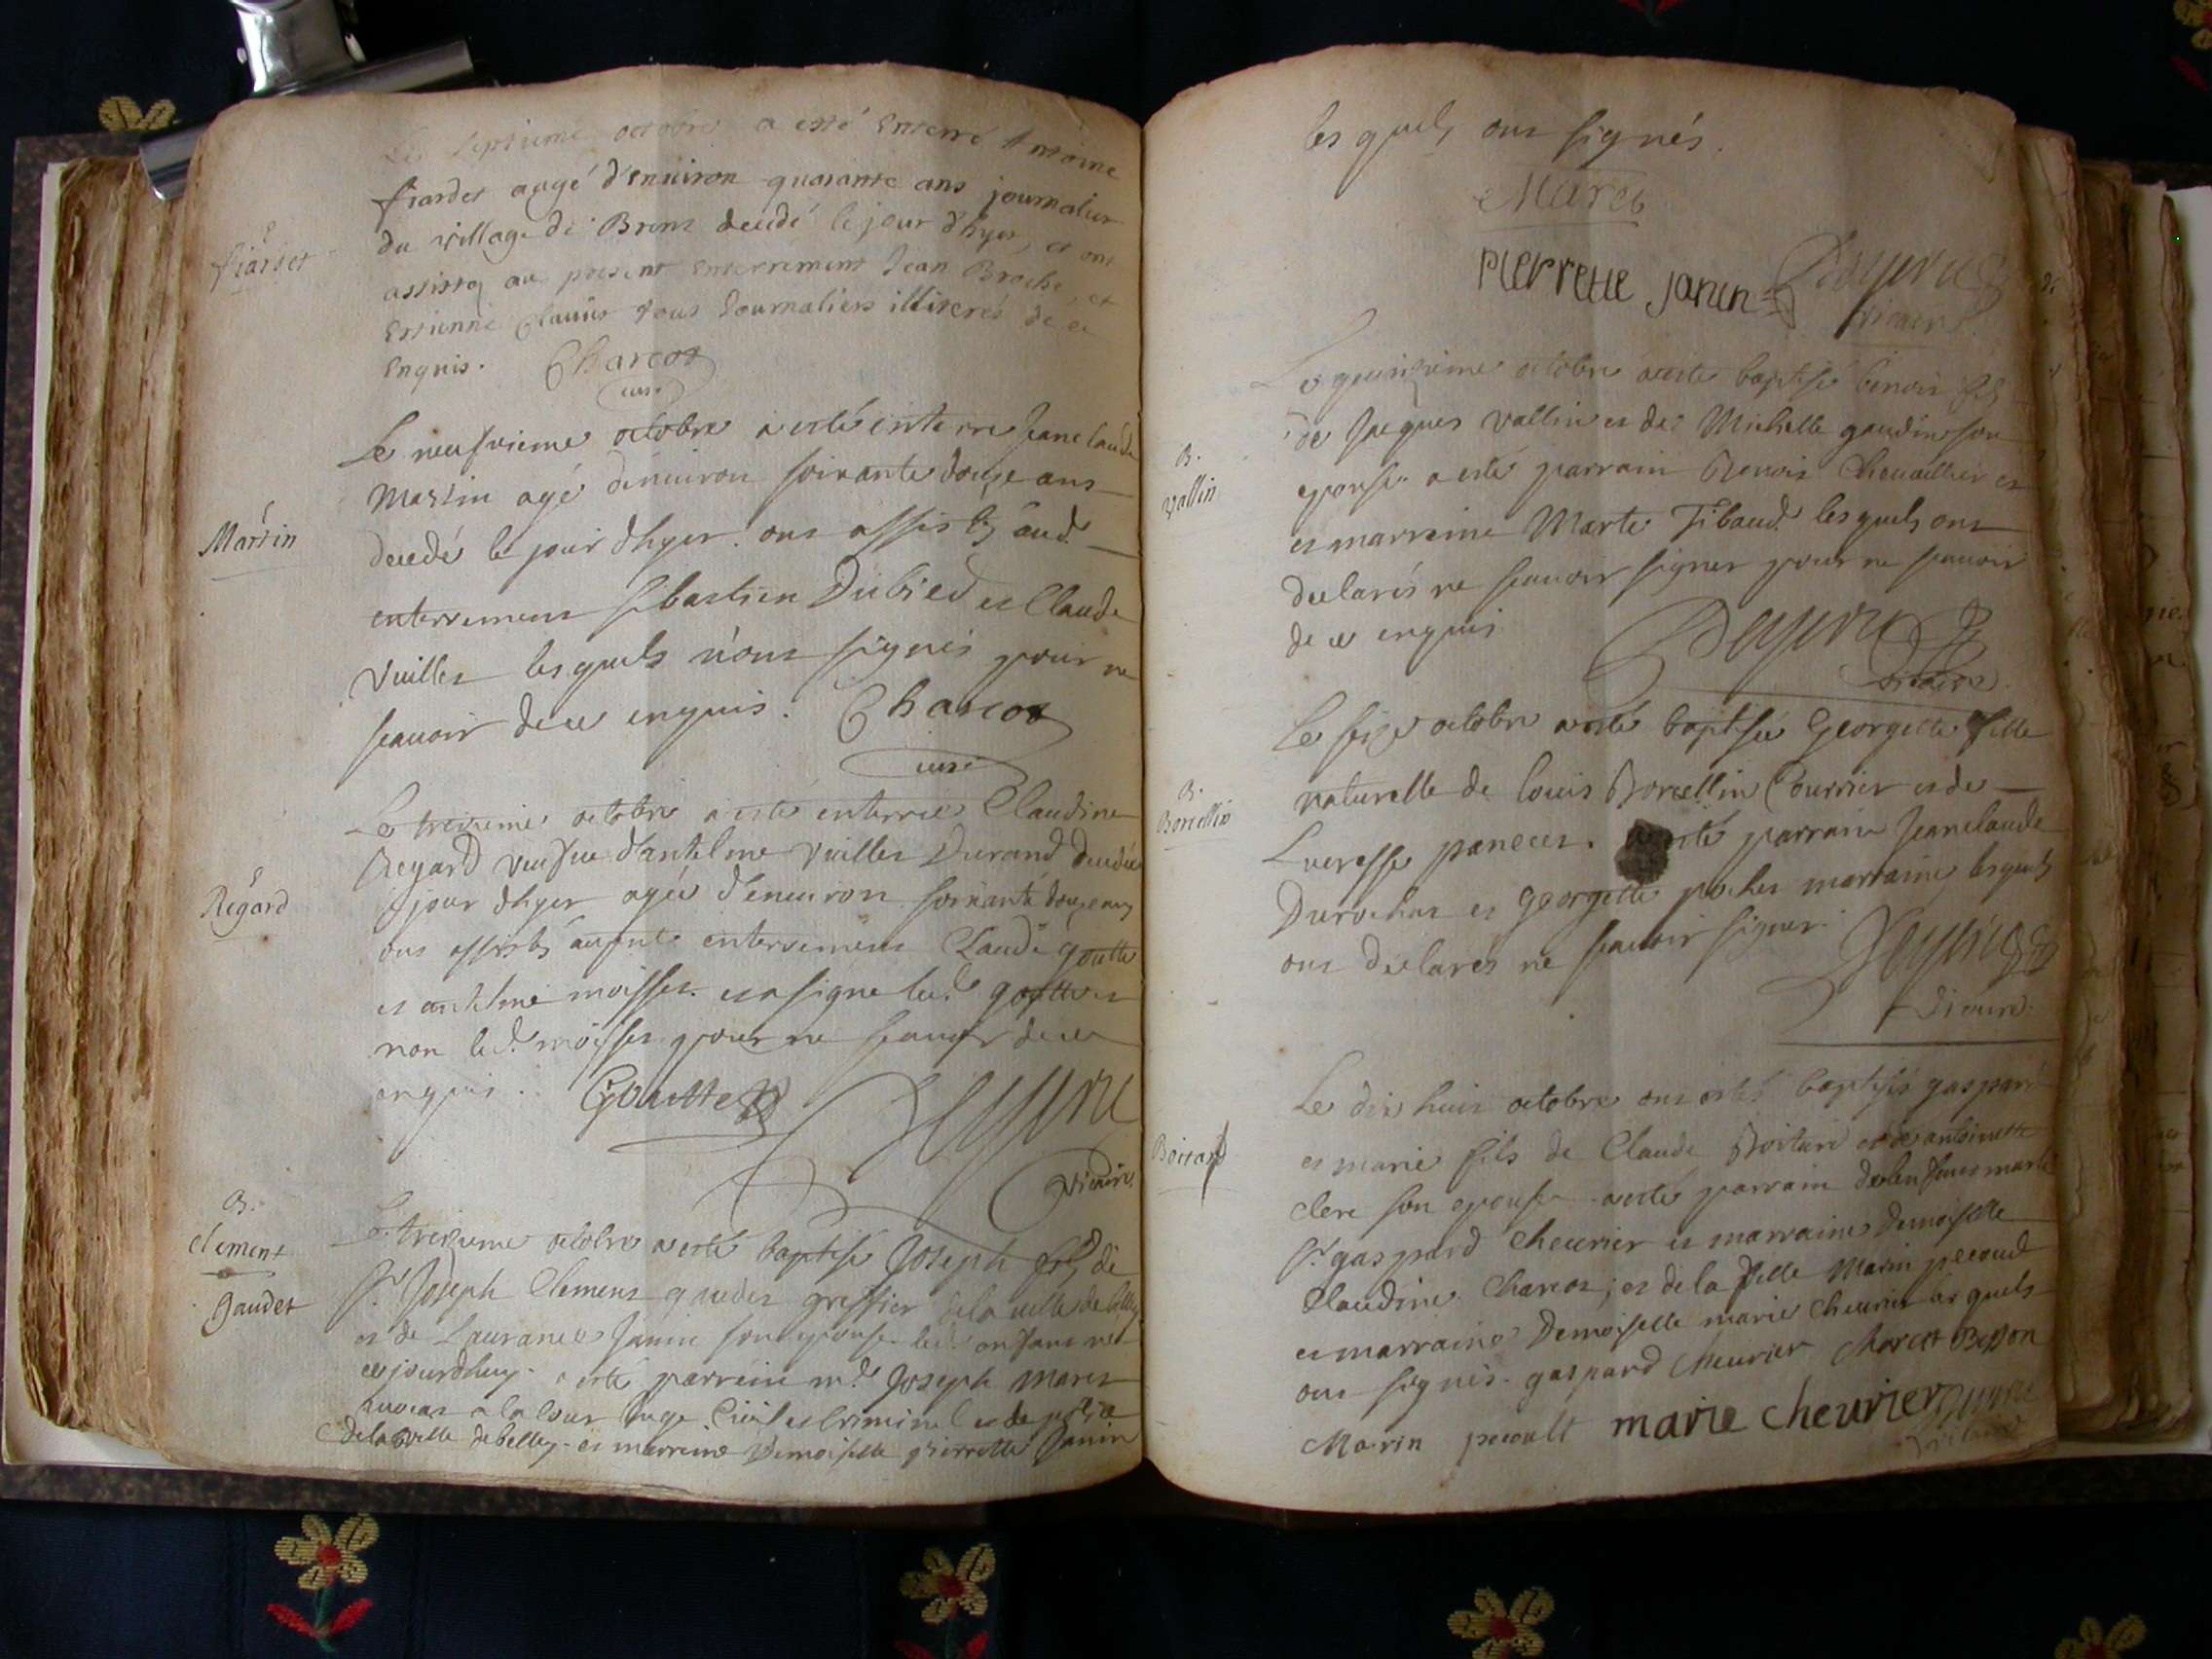 Le septieme octobre a esté enterré Antoine
fiardet aagé d'enuiron quarante ans journalier
du village de Brens decedé le jour d'hyer, et ont
assistez au present enterrement Jean Broche, et
Estienne Clauier tous Journaliers illiterés de ce
Enquis. Charcot
curé
fiardet
Le neufvieme octobre a esté enterre Jeanclaude
Martin agé d'enuiron soixante douze ans
decedé le jour d'hyer. ont assistez aud.
enterrement sebastien Dubied et Claude
Vuillet lesquels n'ont signés pour ne
scauoir de ce enquis. Charcot
curé
Martin
Le treizieme octobre a esté enterree Claudine
Regard veufue d'antelme vuillet Durand decedée
jour d'hyer agée d'enuiron soixante douze ans
ont assistés au pnt enterrement Claude goutte
et antelme moisset et a signe led. goutte et
non led. moisset pour ne scauoir de ce
enquis. Goutte Deyvrie
vicaire
Regard
Le treizieme octobre a esté baptisé Joseph fils de
Sr. Joseph Clement gaudet greffier de la ville de belley
et de Laurance Janin son epouse led. enfant né
ce jourdhuy a esté parrain mr. Joseph Maret
auocat a la Cour Juge Ciuil et Criminel et de police
de la ville de belley. et marreine Demoiselle pierrette Janin
B.
Clement
Gaudet
lesquels ont signés.
Maret
pierrette janin
vicaire
Le quinzieme octobre a esté baptisé benoit fils
de Jacques vallin et de Michelle gaudin son
epouse a esté parrain Benoit Cheuaillier et
et marreine Marte Tibaud lesquels ont
declarés ne scauoir signer pour ne scauoir
de ce enquis
vicaire
B.
vallin
Le seize octobre a esté baptisée Georgette fille
naturelle de louis Borcellin Courrier et de
Lucresse panecet. a esté parrain Jeanclaude
Durochat et georgette pochet marraine lesquels
ont declarés ne scauoir signer.
vicaire
B.
Borcellin
Le dix huit octobre ont estés baptisés gaspard
et marie fils de Claude Boitard et de antoinette
clerc son epouse a esté parrain de l'enfant marle
Sr. gaspard cheurier et marraine Demoiselle
Claudine Charcot; et de la fille Marin pecoud
et marraine Demoiselle marie cheurier lesquels
ont signés. gaspard cheurier Charcot Besson
Marin pecoult marie cheurier
vicaire
Boitard